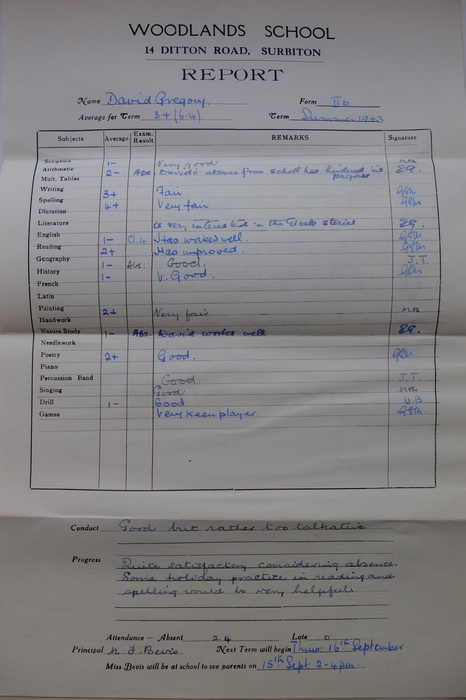 WOODLANDS SCHOOL
14 DITTON ROAD, SURBITON
REPORT
Name David Gregory. Form IIb
Average for Term 3+ (6.4) Term Summer 1943
Subjects Average Exam. Result REMARKS Signature
Scripture 1- Very good
Arithmetic 2- Abs. David's absence from school has hindered his progress EG.
Mult. Tables
Writing 3+ Fair
Spelling 4+ Very fair
Dictation
Literature is very interested in the Greek stories EG.
English 1- Has worked well.
Reading 2+ Has improved.
Geography 1- Abs. Good. J.T.
History 1- V. Good.
French
Latin
Painting 2+ Very fair
Handwork
Nature Study 1- Abs. David works well EG.
Needlework
Poetry 2+ Good.
Piano
Percussion Band Good. J.T.
Singing Good
Drill 1- Good U.B.
Games Very keen player.
Conduct Good but rather too talkative
Progress Quite satisfactory considering absence.
Some holiday practice in reading and
spelling would be very helpful.
Attendance — Absent 24 Late 0
Principal Bevis Next Term will begin Thurs: 16th September
Miss Bevis will be at school to see parents on 15th Sept: 2-4pm.